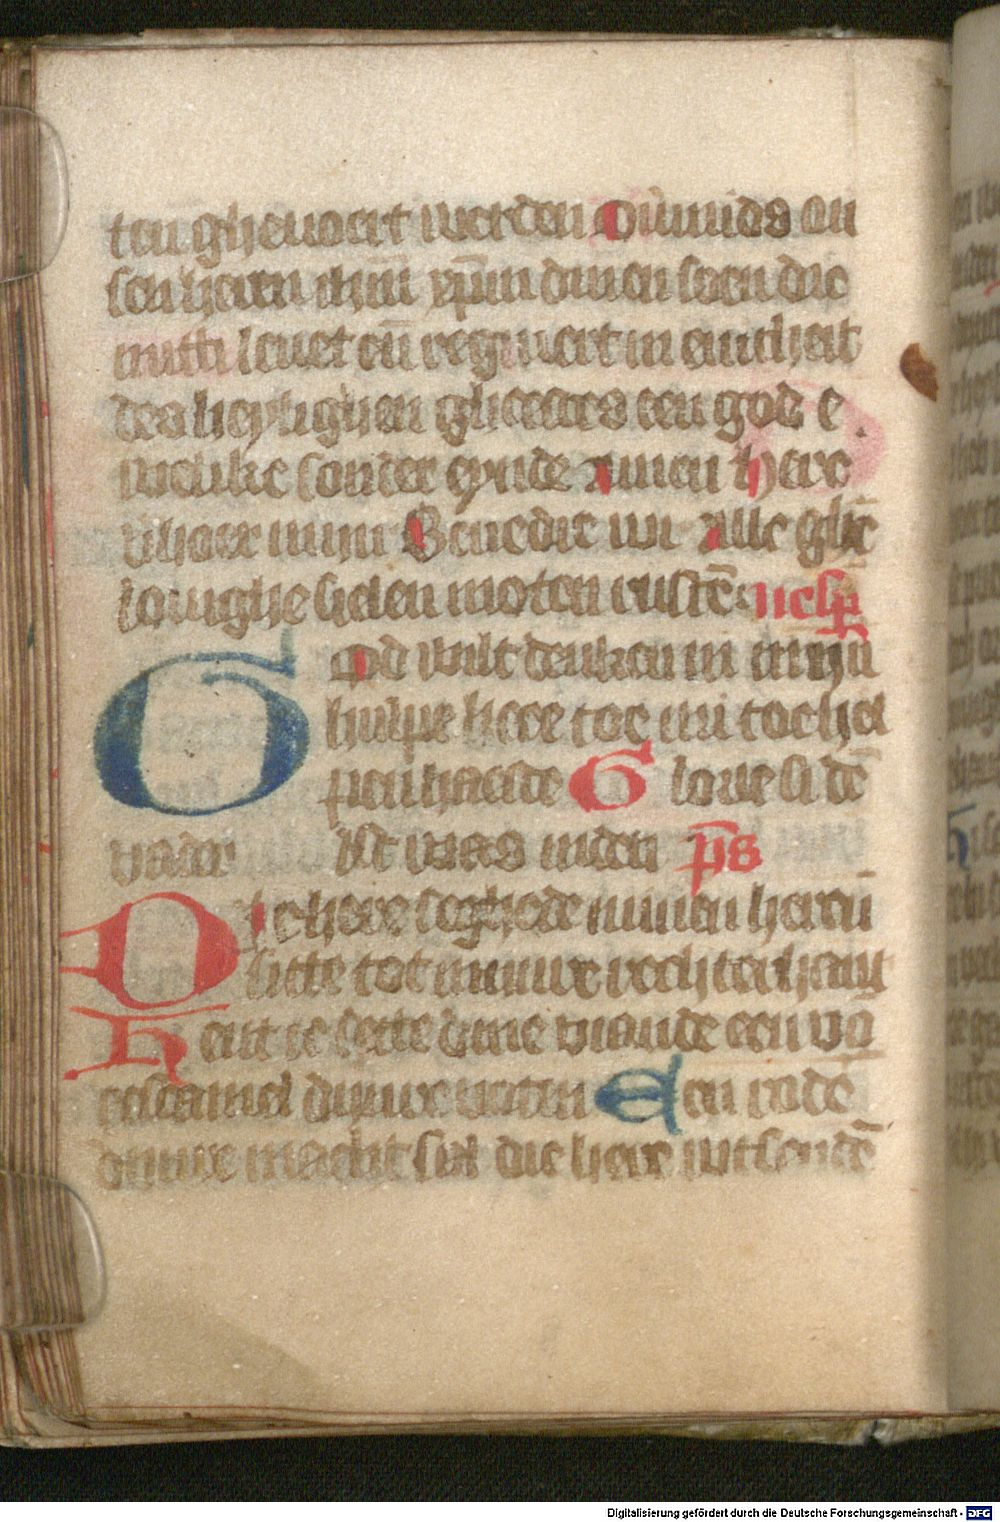 ten ghevoert werden Ouvmids on
sen heren ihm̄ xp̄m dinen soen die
mitti levet en̄ regniert in ewicheit
des heylighen gheestes een god e
welike sonder eynde Amen Here
verhoer mijn Benedie wi Alle ghe
lovighe sielen moten rustē vesp̄
God wilt denken in mijn
hulpe here toe mi te hel
pen haeste Glorie si dē
vader Alst was inden ps
Die here seghede minen heren
sitte tot minre rechterhant
Hent ic sette dine viande een vō
etscamel dijnre voten Een rode
dinre macht sal die here utsendē
Digitalisierung gefördert durch die Deutsche Forschungsgemeinschaft - DFG